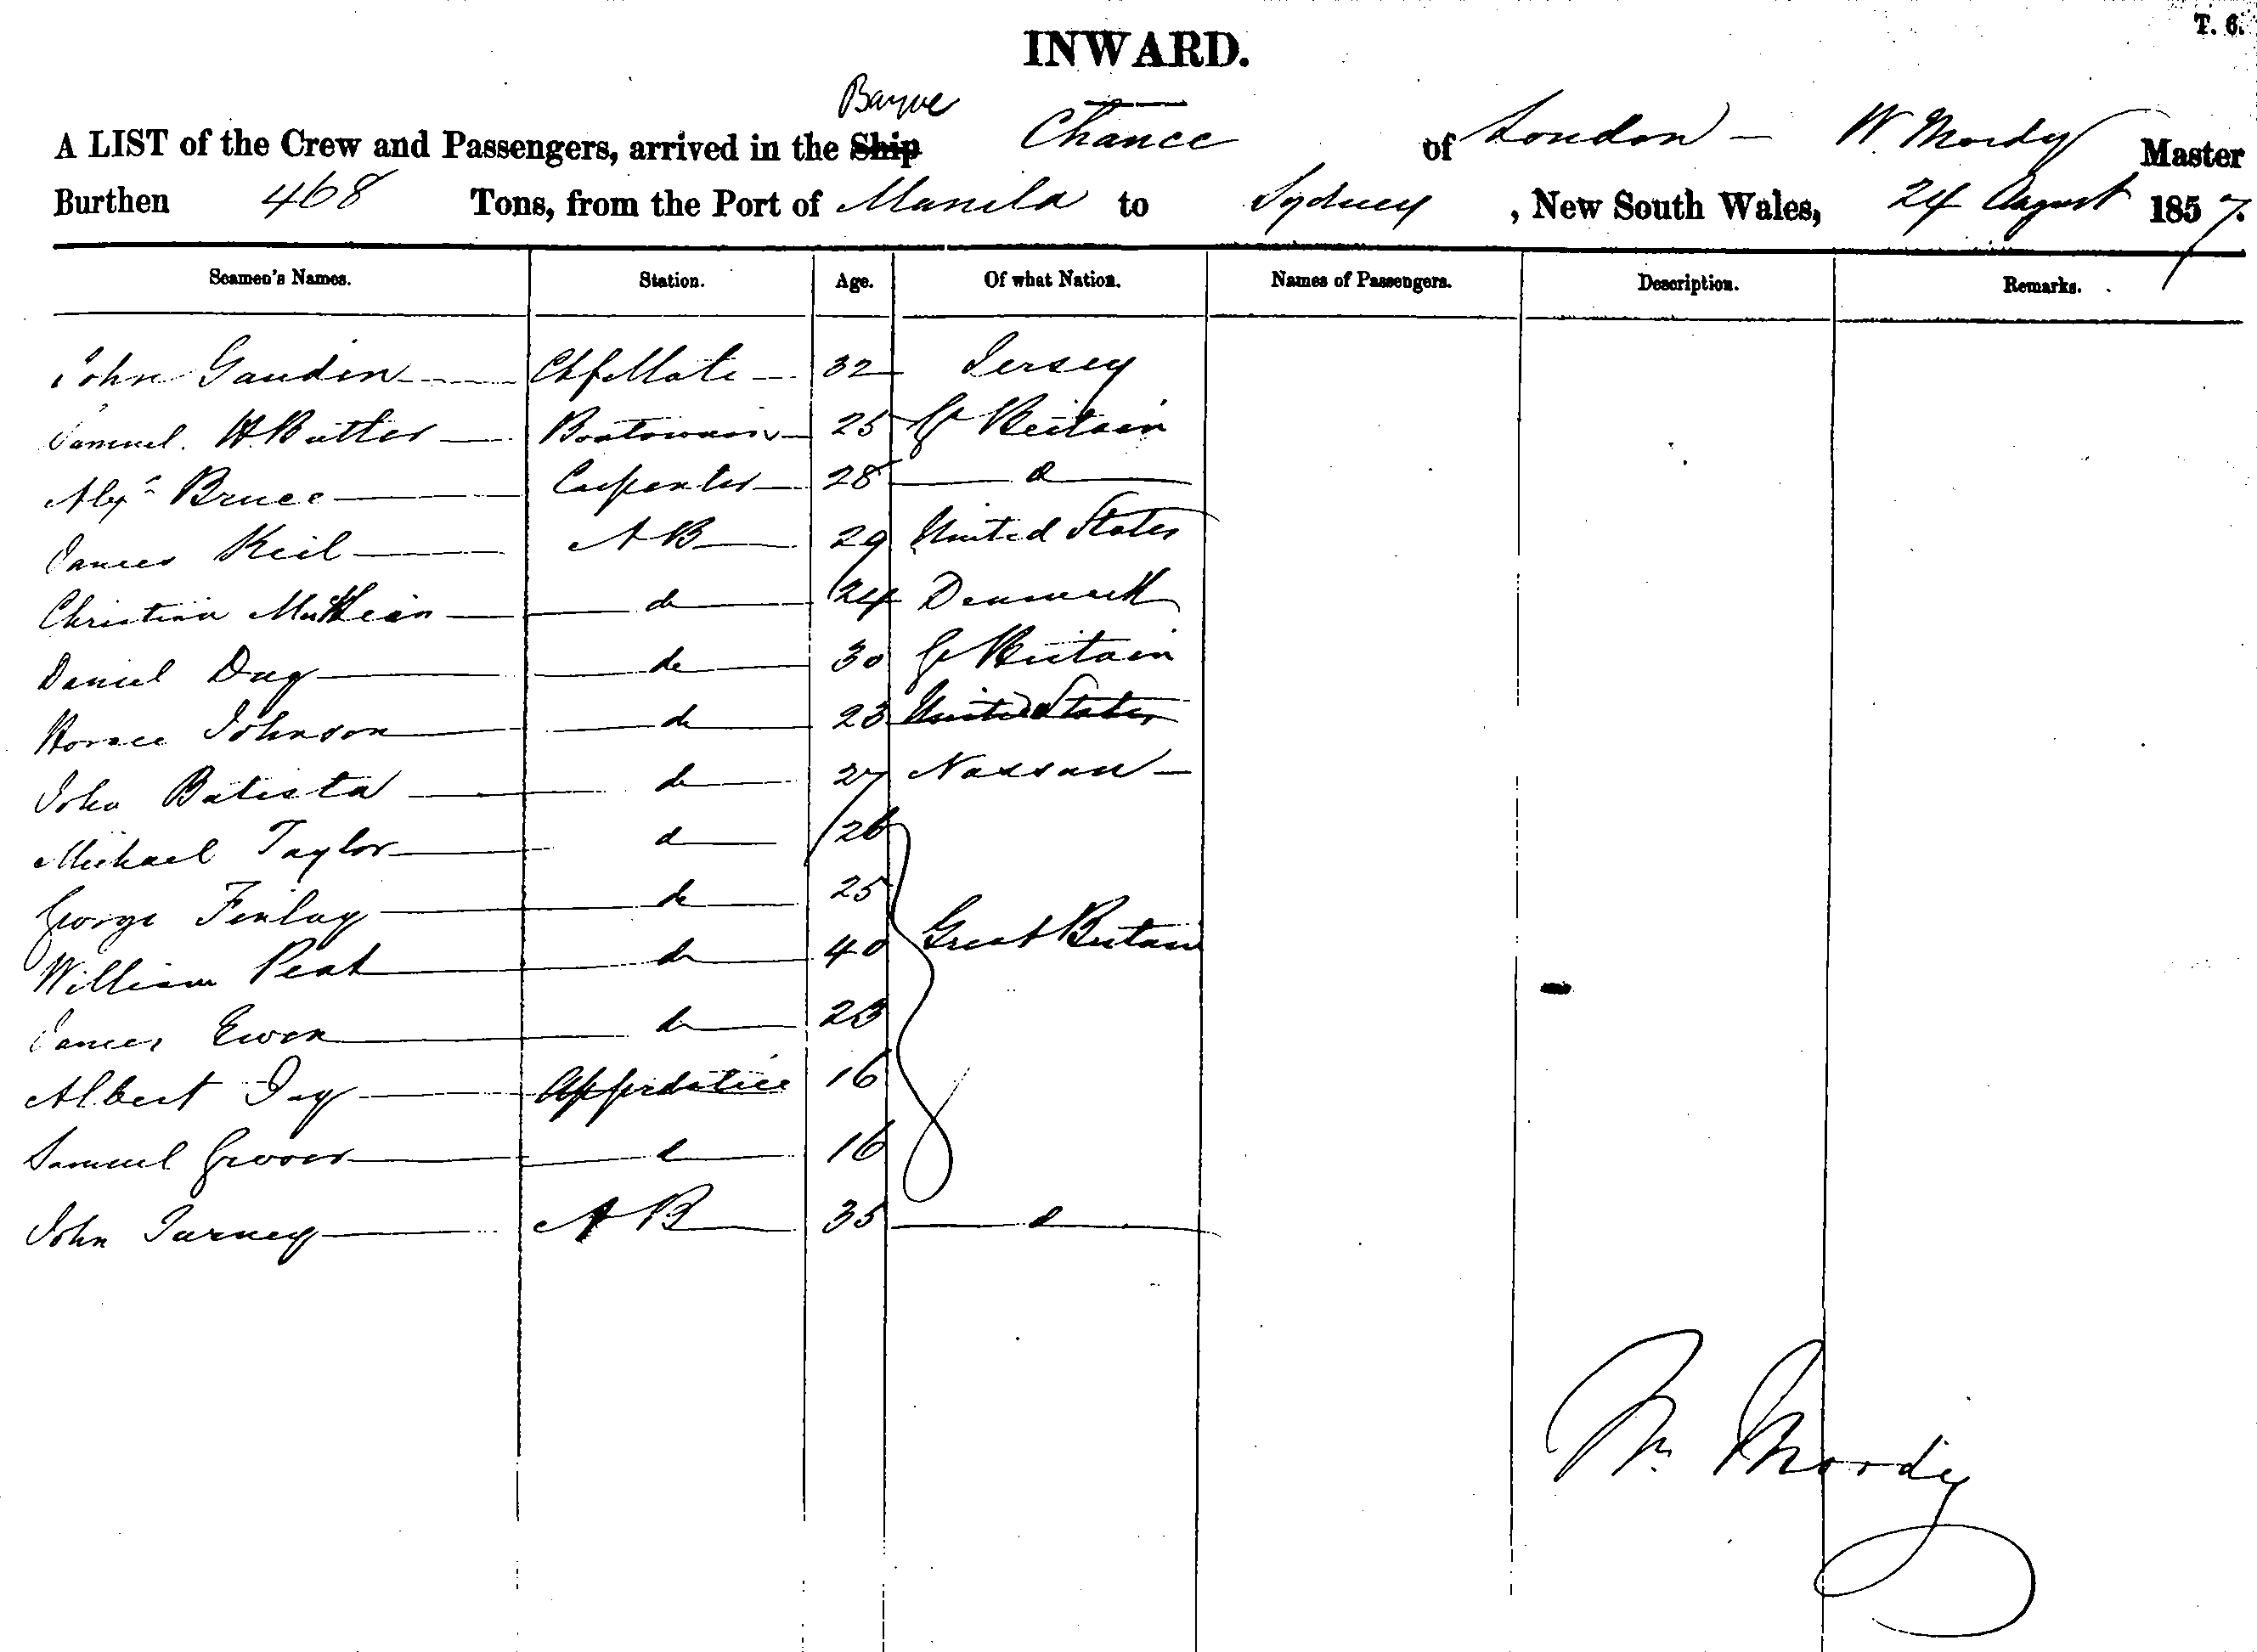 T. 6.
INWARD.
Barque
A LIST of the Crew and Passengers, arrived in the Ship Chance of London - W. Mordy Master
Burthen 468 Tons, from the Port of Manila to Sydney, New South Wales, 24 August 1857.
Seamen's Names. Station. Age. Of what Nation. Names of Passengers. Description. Remarks.
John Gaudin Chf Mate 32 Jersey
Samuel H Butler Boatswain 25 Gt Britain
Alexr Bruce Carpenter 28 do
James Keil A B 29 United States
Christian do 24 Denmark
Daniel Day do 30 Gt Britain
Horace Johnson do 23 United States
John Batista do 27 Nassau
Michael Taylor do 26
George Finlay do 25
William Peat do 40 Great Britain
James Ewen do 23
Albert Day Apprentice 16
Samuel Groves do 16
John A B 35 do
Wm Mordy